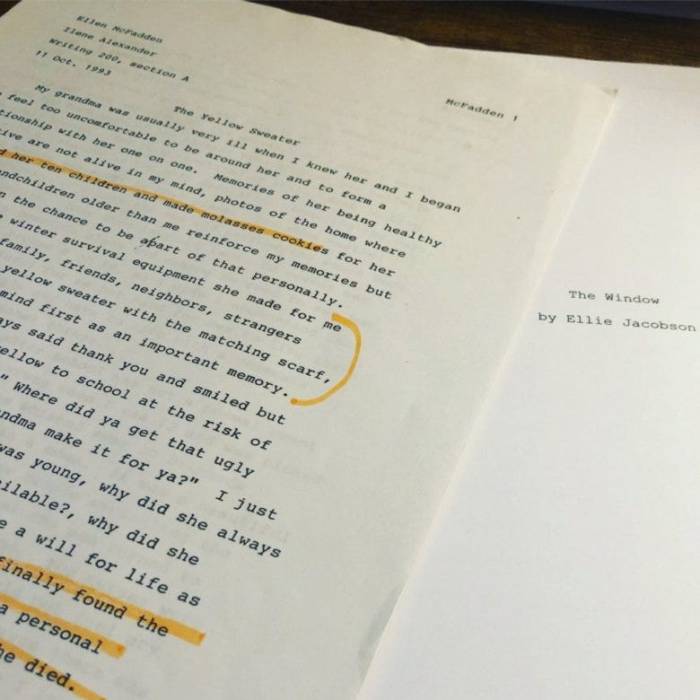 Ellen McFadden
Ilene Alexander
Writing 200, section A
11 Oct. 1993
McFadden 1
The Yellow Sweater
My grandma was usually very ill when I knew her and I began
feel too uncomfortable to be around her and to form a
tionship with her one on one. Memories of her being healthy
ive are not alive in my mind, photos of the home where
d her ten children and made molasses cookies for her
andchildren older than me reinforce my memories but
n the chance to be apart of that personally.
winter survival equipment she made for me
family, friends, neighbors, strangers
yellow sweater with the matching scarf,
mind first as an important memory.
ays said thank you and smiled but
ellow to school at the risk of
"Where did ya get that ugly
andma make it for ya?" I just
was young, why did she always
ilable?, why did she
e a will for life as
finally found the
a personal
he died.
The Window
by Ellie Jacobson